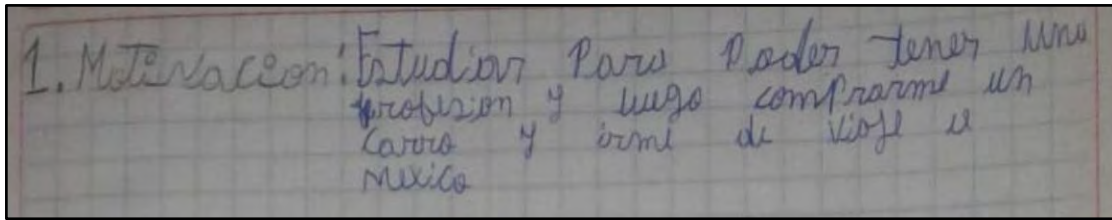 1. Motivacion: Estudiar Para Poder tener una
profesion y luego comprarme un
carro y irme de viaje a
mexico